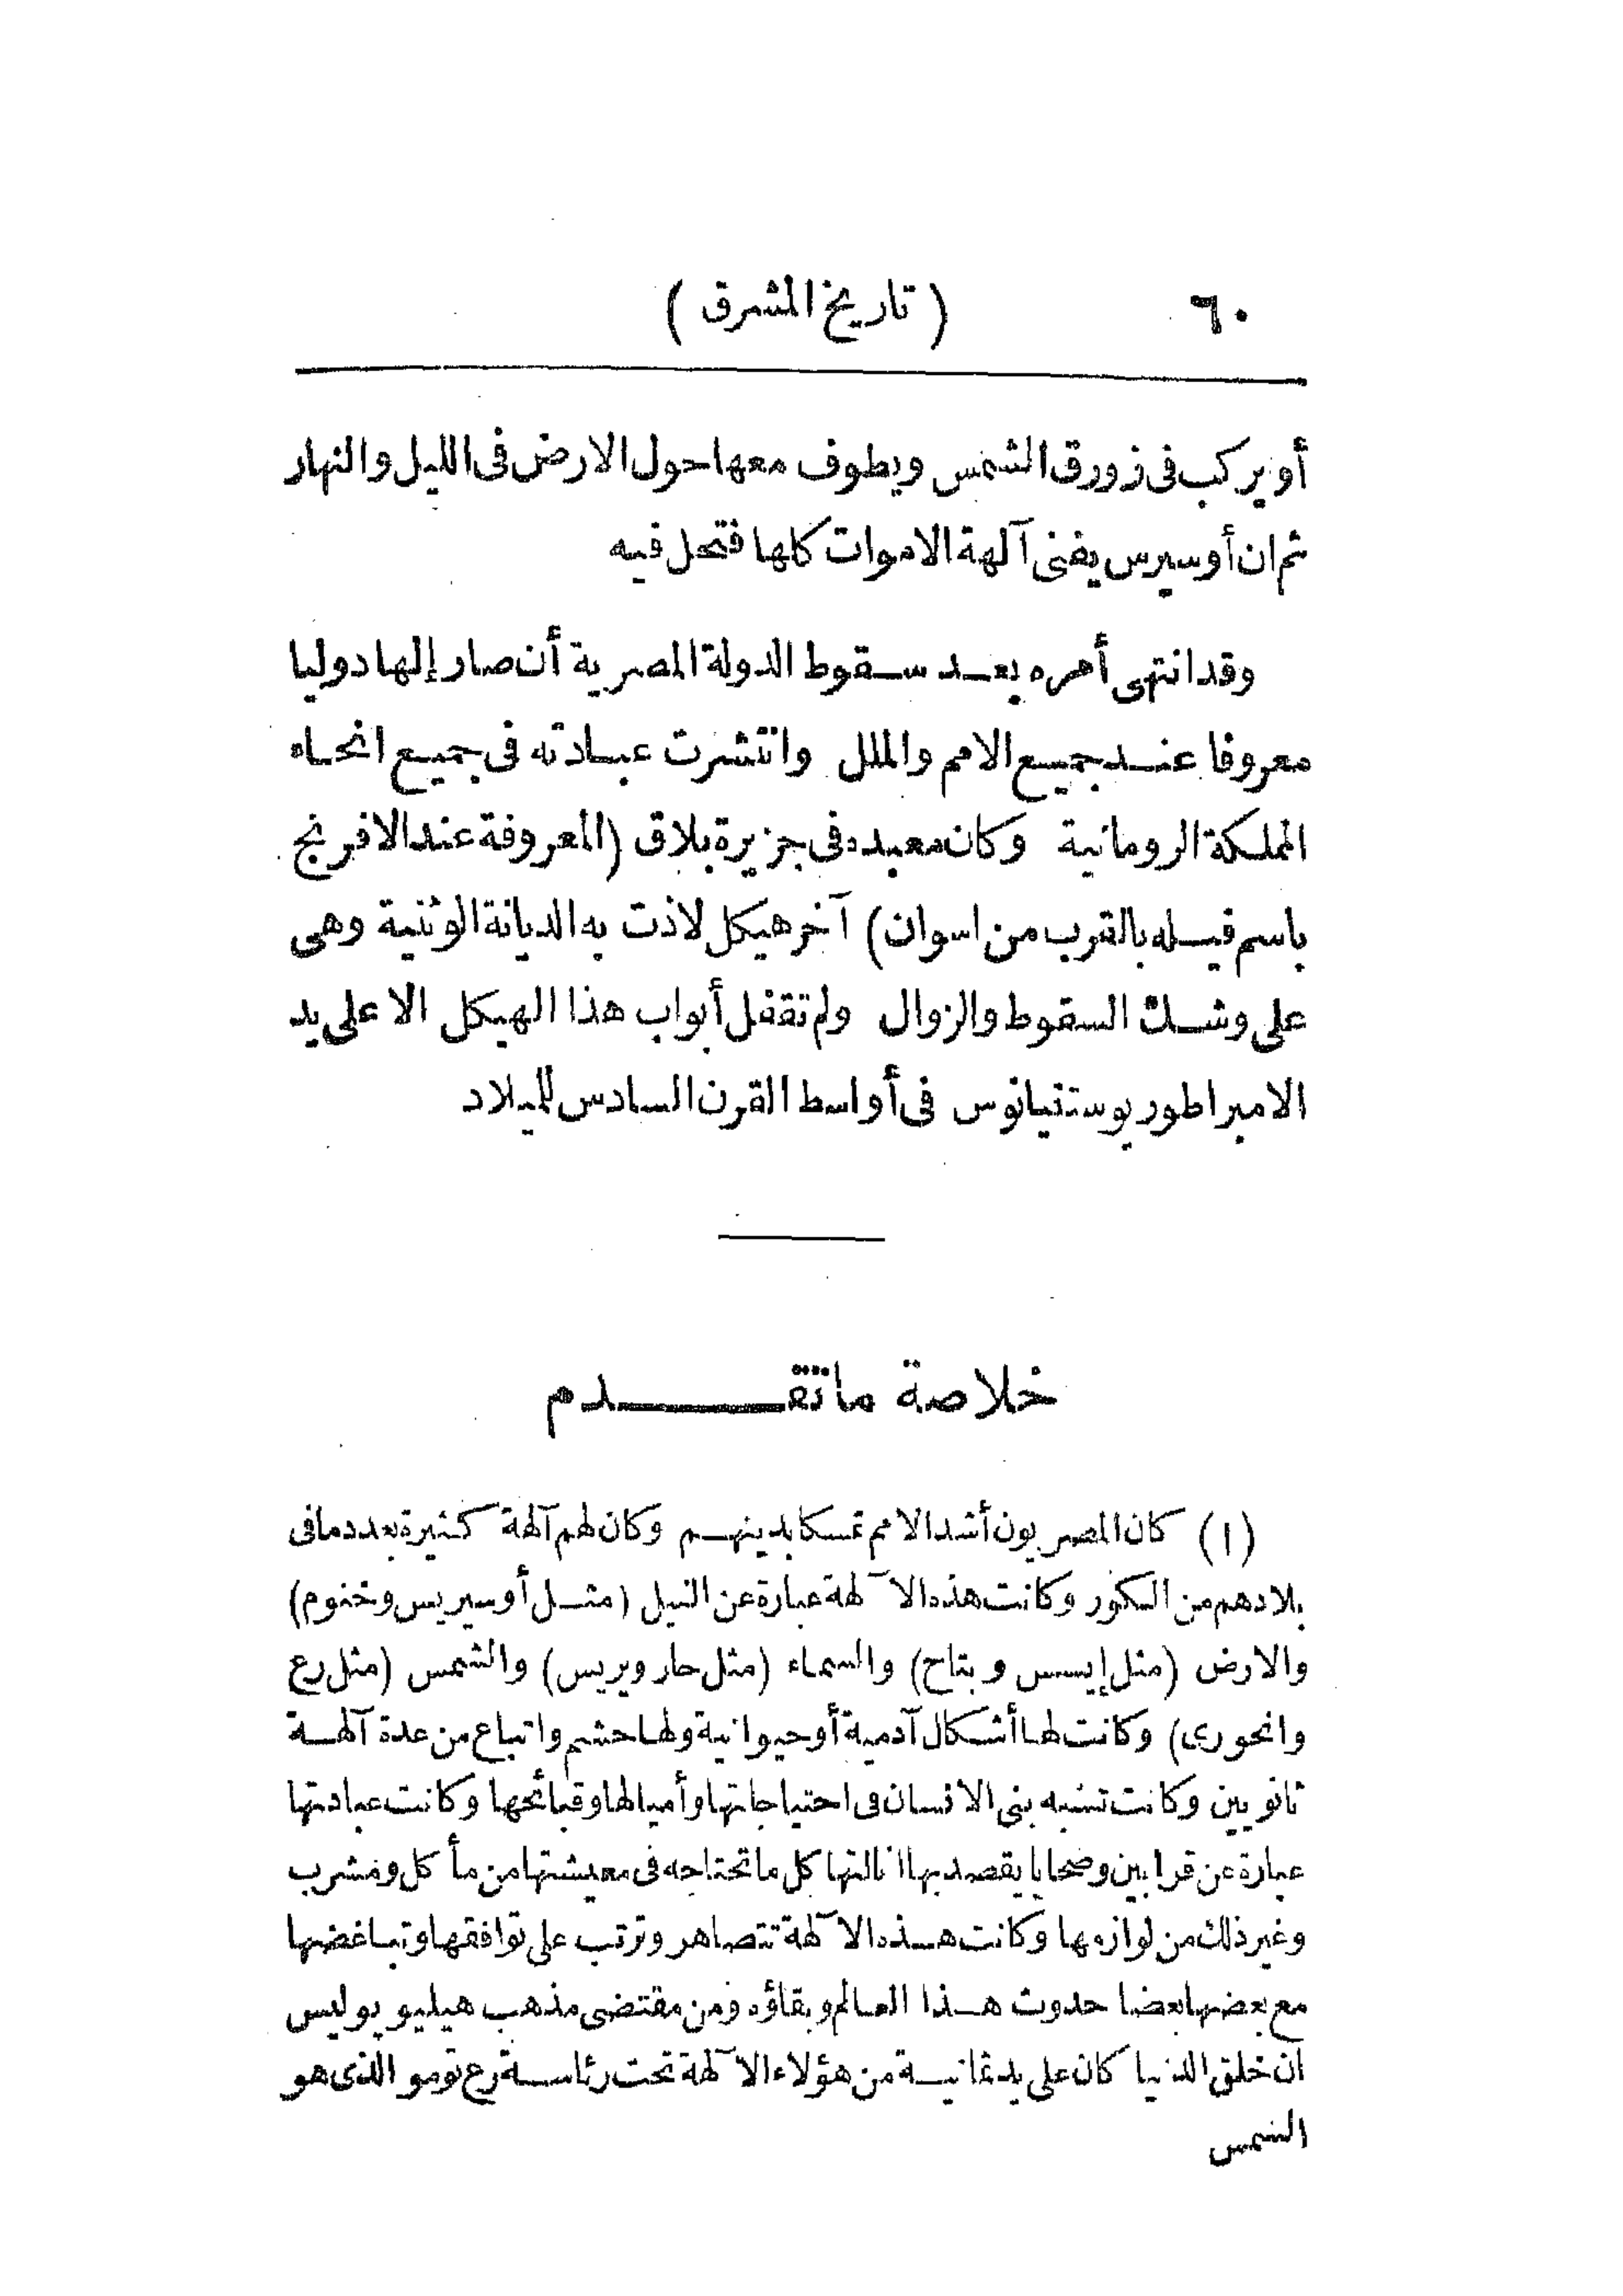 ٦٠ ( تاريخ المشرق )
أو يركب فى زورق الشمس ويطوف معها حول الارض فى الليل والنهار
ثم ان أوسيرس يفنى آلهة الاموات كلها فتحل فيه
وقد انتهى أمره بعد سقوط الدولة المصرية أن صار إلها دوليا
معروفا عند جميع الامم والملل وانتشرت عبادته فى جميع انحاء
المملكة الرومانية وكان معبده فى جزيرة بلاق (المعروفة عند الافرنج
باسم فيله بالقرب من اسوان) آخر هيكل لاذت به الديانة الوثنية وهى
على وشك السقوط والزوال ولم تقفل أبواب هذا الهيكل الا على يد
الامبراطور يوستنيانوس فى أواسط القرن السادس للميلاد
خلاصة ما تقدم
(١) كان المصريون أشد الامم تمسكا بدينهم وكان لهم آلهة كثيرة بعدد ما فى
بلادهم من الكور وكانت هذه الآلهة عبارة عن النيل (مثل أوسيريس وخنوم)
والارض (مثل إيسس وبتاح) والسماء (مثل حارويريس) والشمس (مثل رع
وانحورى) وكانت لها أشكال آدمية أو حيوانية ولها حشم واتباع من عدة آلهة
ثانويين وكانت تشبه بنى الانسان فى احتياجاتها وأميالها وقبائحها وكانت عبادتها
عبارة عن قرابين وضحايا يقصد بها انالتها كل ما تحتاجه فى معيشتها من مأكل ومشرب
وغير ذلك من لوازمها وكانت هذه الآلهة تتصاهر وترتب على توافقها وتباغضها
مع بعضها بعضا حدوث هذا العالم وبقاؤه ومن مقتضى مذهب هيليوبوليس
ان خلق الدنيا كان على يد ثمانية من هؤلاء الآلهة تحت رئاسة رع تومو الذى هو
الشمس